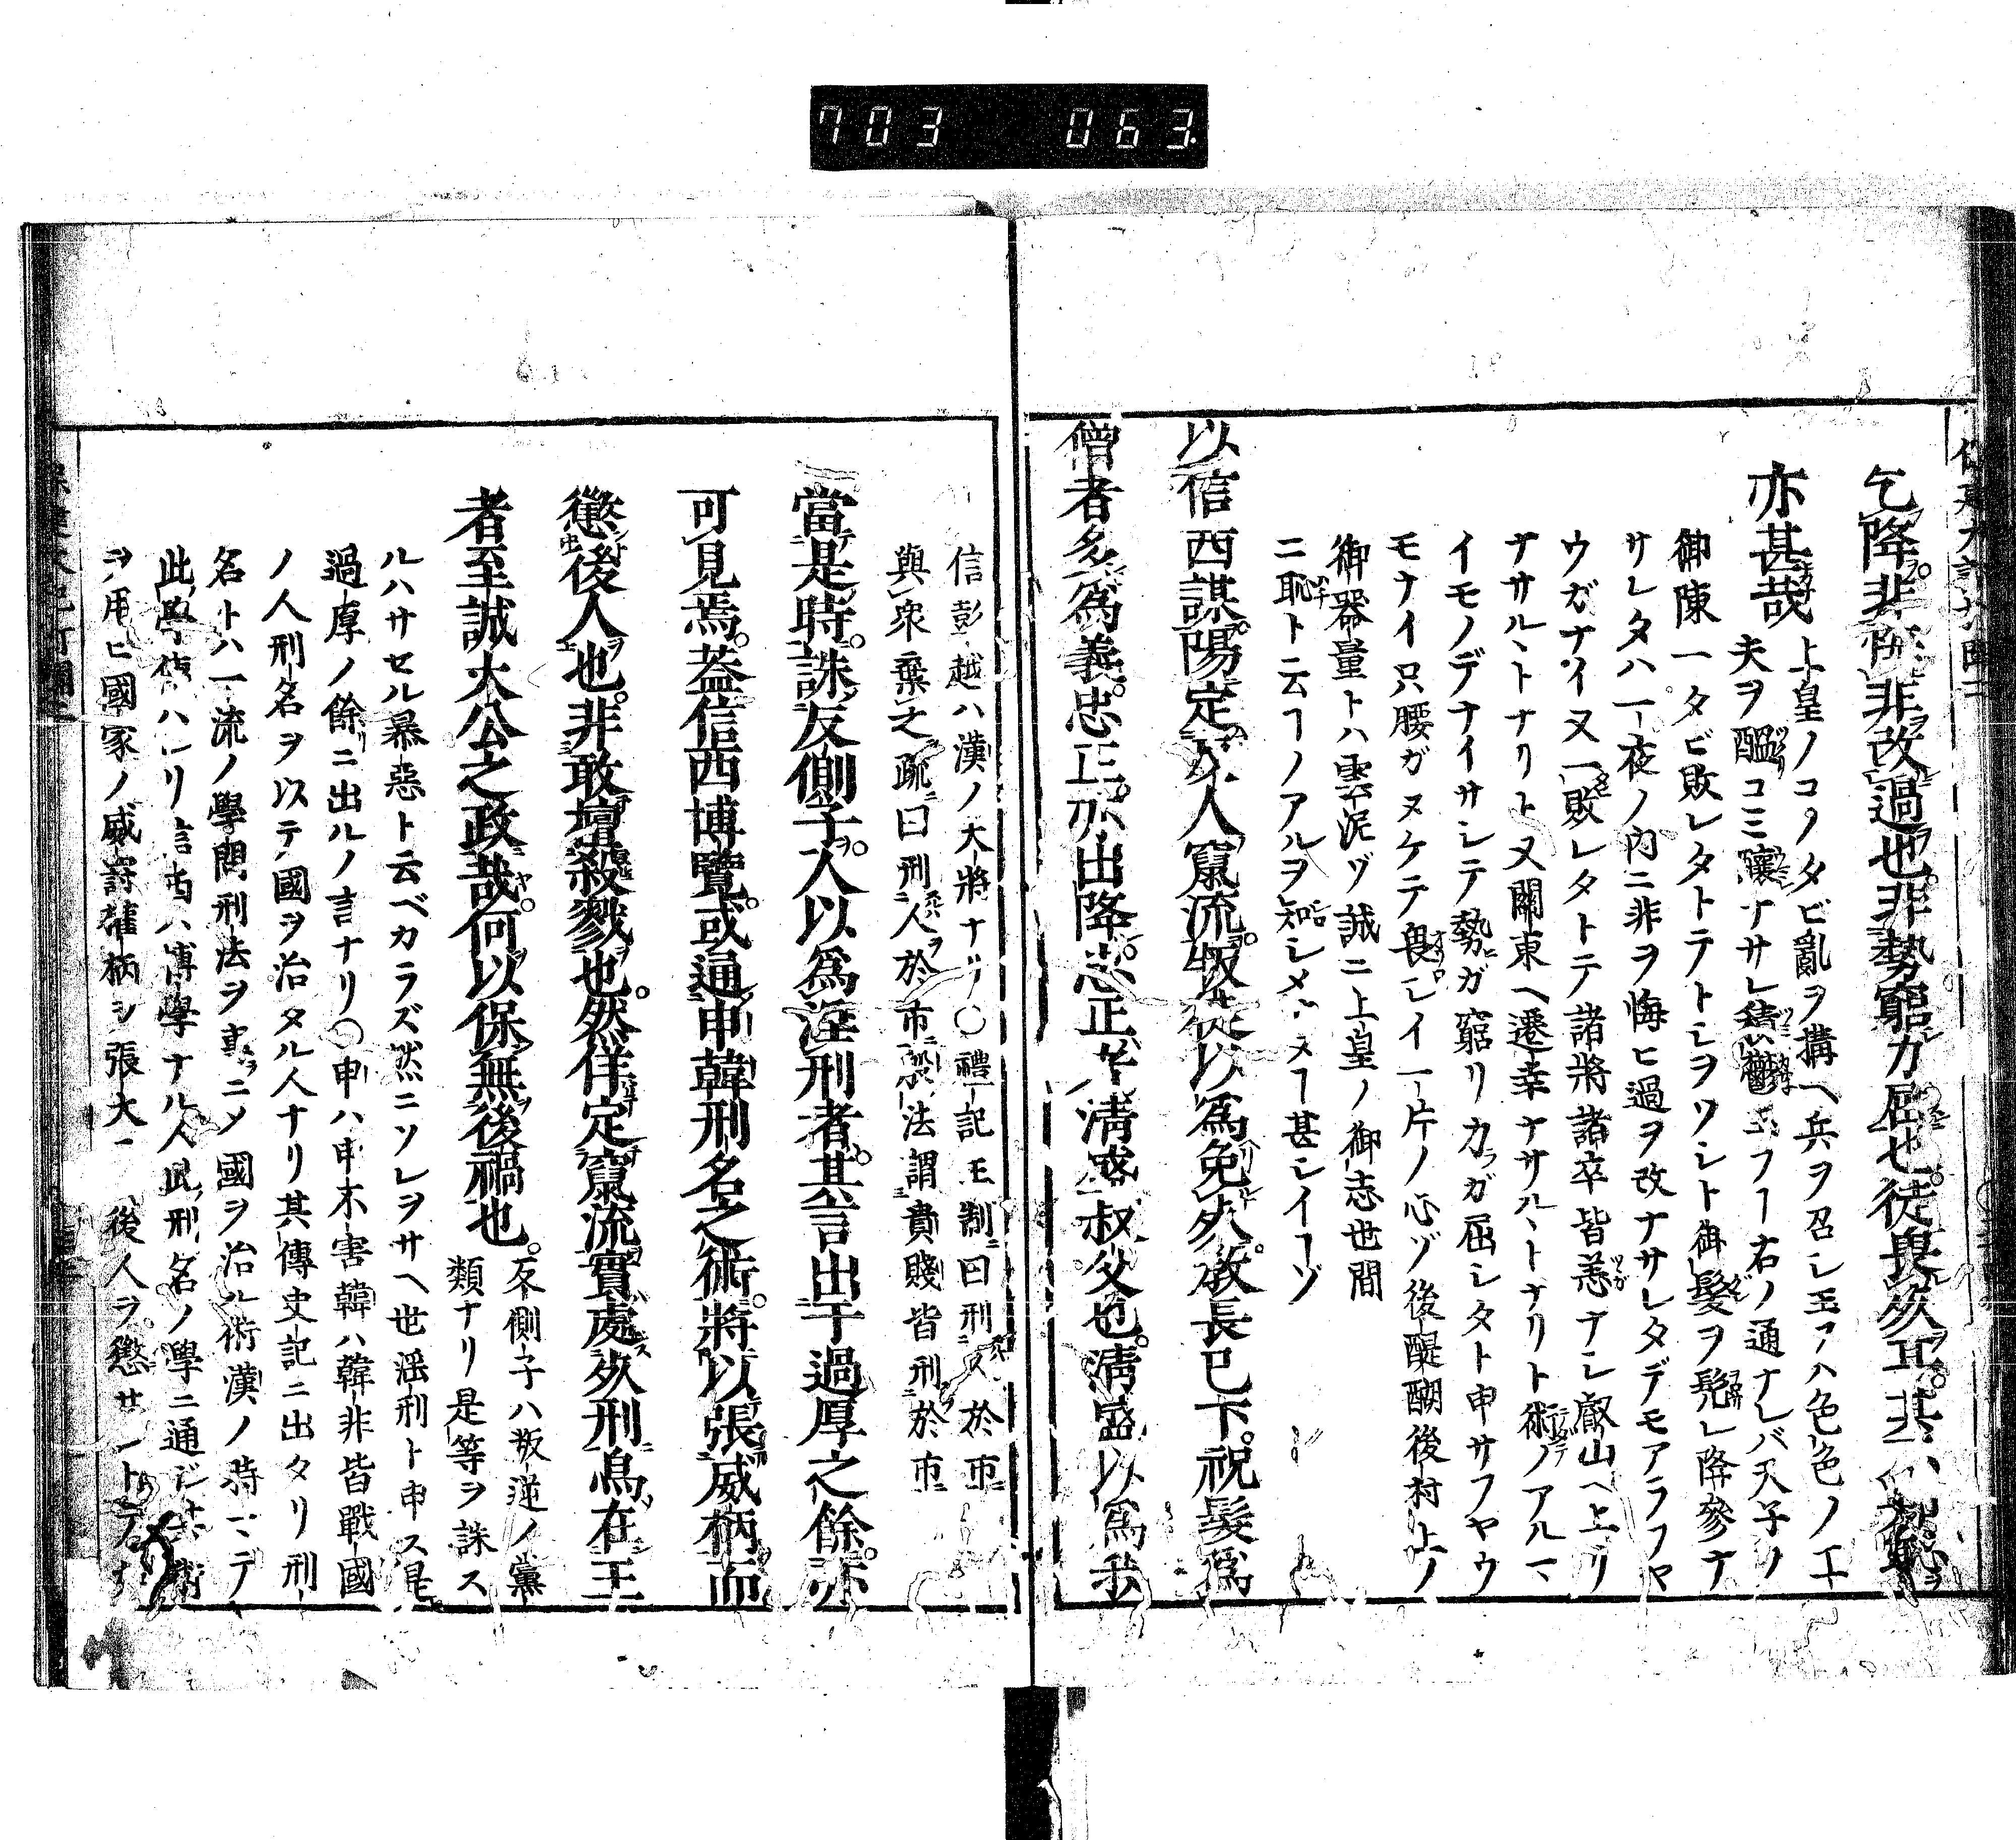 703 063
乞降非悔非改過也非勢窮力屈也徒畏死耳其
亦甚哉
上皇ノコノタビ亂ヲ搆ヘ兵ヲ召シ玉フハ色色ノ
夫ヲ醞コミ釀ナサレ 右ノ通ナレバ天子ノ
御陳一タビ敗レタトテトシヲワシト御髮ヲ髡シ降参ナ
サレタハ一夜ノ内ニ非ヲ悔ヒ過ヲ改ナサレタデモアラフヤ
ウガナイ又一敗レタトテ諸將諸卒皆恙ナシ叡山ヘ上リ
ナサルヽトナリト又關東ヘ遷幸ナサルヽトナリト術ノアルマ
イモノデナイサレテ勢ガ窮リカガ屈シタト申サフヤウ
モナイ只腰ガヌケテ畏シイ一片ノ心ゾ後醍醐後村上ノ
御器量トハ雲泥ヅ誠ニ上皇ノ御志世間
ニ恥ト云フノアルヲ知シメ 甚シイーゾ
以信西謀陽定人竄流叛徒以爲免死教長已下祝髮爲
僧者多爲義忠正亦出降忠正平清盛叔父也清盛以爲
信彭越ハ漢ノ大將ナリ〇禮記王制曰刑人於市
與衆棄之疏曰刑人於市 法謂貴賤皆刑於市
當是時誅反側子人以爲淫刑者其言出于過厚之餘亦
可見焉蓋信西博覽或通申韓刑名之術將以張威柄而
懲後人也非敢擅殺戮也然佯定竄流實處死刑烏在王
者至誠大公之政哉何以保無後禍也
反側子ハ叛逆ノ黨
類ナリ是等ヲ誅ス
ルハサセル暴惡ト云ベカラズ然ニソレヲサヘ世淫刑ト申ス是
過厚ノ餘ニ出ルノ言ナリ〇申ハ申不害韓ハ韓非皆戰國
ノ人刑名ヲ以テ國ヲ治タル人ナリ其傳史記ニ出タリ刑
名トハ一流ノ學問刑法ヲ專ニメ國ヲ治ル術漢ノ時マデ
此學 ハ リ信西ハ博學ナル人 刑名ノ學ニ通ジ其術
ヲ用ヒ國家ノ威 權柄シ張大ニ 後人ヲ懲サント